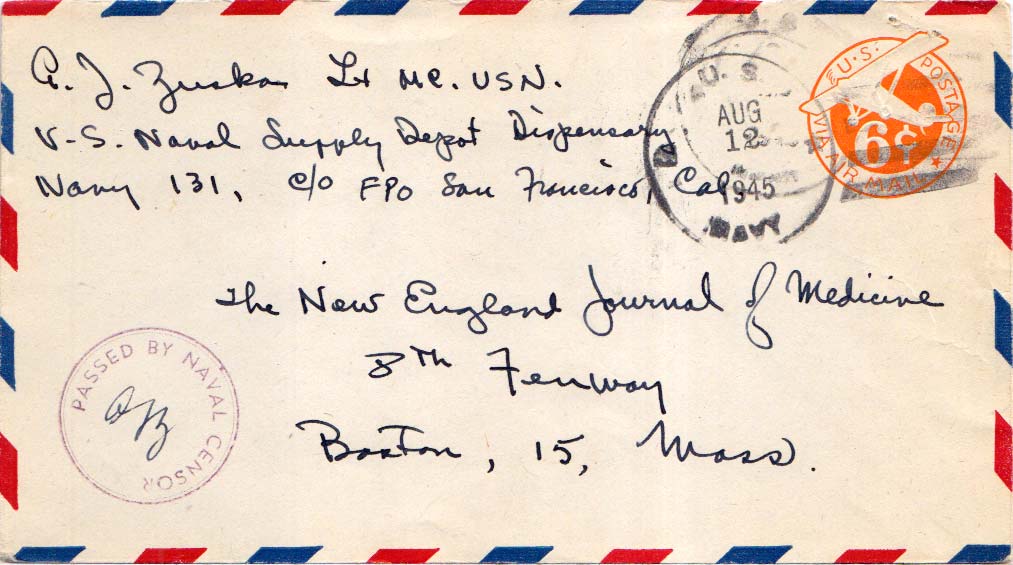 A. J. Zuska Lt MC. USN.
U.S. Naval Supply Depot Dispensary
Navy 131, c/o FPO San Francisco, Cal.
U.S. NAVY
AUG
12
1945
U.S. POSTAGE
6¢
VIA AIR MAIL
The New England Journal of Medicine
8th Fenway
Boston, 15, Mass.
PASSED BY NAVAL CENSOR
AJZ